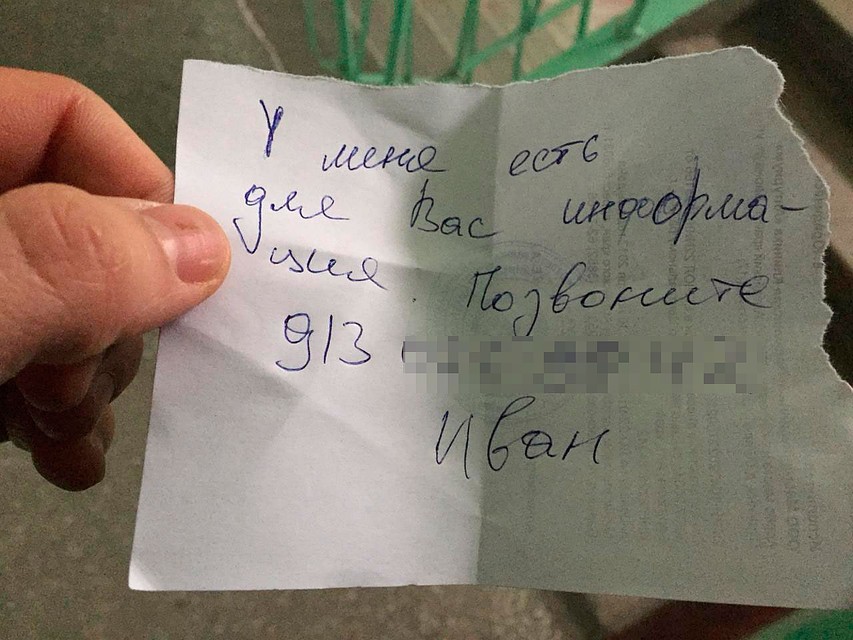 У меня есть
для Вас информа-
ция. Позвоните
913
Иван